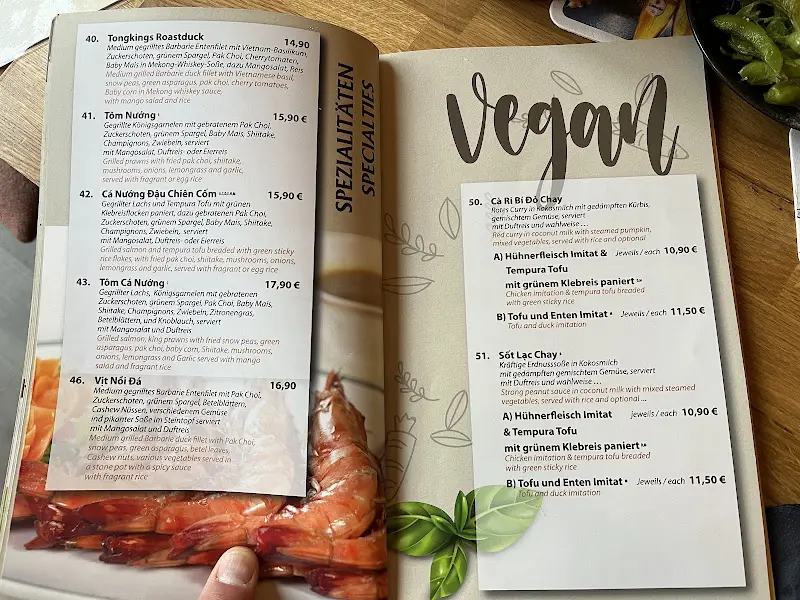 40. Tongkings Roastduck 14,90
Medium gegrilltes Barbarie Entenfilet mit Vietnam-Basilikum,
Zuckerschoten, grünem Spargel, Pak Choi, Cherrytomaten,
Baby Mais in Mekong-Whiskey-Soße, dazu Mangosalat, Reis
Medium grilled Barbarie duck fillet with Vietnamese basil,
snow peas, green asparagus, pak choi, cherry tomatoes,
Baby corn in Mekong whiskey sauce,
with mango salad and rice
41. Tôm Nướng 15,90 €
Gegrillte Königsgarnelen mit gebratenem Pak Choi,
Zuckerschoten, grünem Spargel, Baby Mais, Shiitake,
Champignons, Zwiebeln, serviert
mit Mangosalat, Duftreis- oder Eierreis
Grilled prawns with fried pak choi, shiitake,
mushrooms, onions, lemongrass and garlic,
served with fragrant or egg rice
42. Cá Nướng Đậu Chiên Cốm 15,90 €
Gegrillter Lachs und Tempura Tofu mit grünen
Klebreisflocken paniert, dazu gebratenen Pak Choi,
Zuckerschoten, grünem Spargel, Baby Mais, Shiitake,
Champignons, Zwiebeln, serviert
mit Mangosalat, Duftreis- oder Eierreis
Grilled salmon and tempura tofu breaded with green sticky
rice flakes, with fried pak choi, shiitake, mushrooms, onions,
lemongrass and garlic, served with fragrant or egg rice
43. Tôm Cá Nướng 17,90 €
Gegrillter Lachs, Königsgarnelen mit gebratenen
Zuckerschoten, grünem Spargel, Pak Choi, Baby Mais,
Shiitake, Champignons, Zwiebeln, Zitronengras,
Betelblättern, und Knoblauch, serviert
mit Mangosalat und Duftreis
Grilled salmon, king prawns with fried snow peas, green
asparagus, pak choi, baby corn, Shiitake, mushrooms,
onions, lemongrass and Garlic served with mango
salad and fragrant rice
46. Vịt Nồi Đá 16,90
Medium gegrilltes Barbarie Entenfilet mit Pak Choi,
Zuckerschoten, grünem Spargel, Betelblättern,
Cashew Nüssen, verschiedenem Gemüse
ind pikanter Soße im Steintopf serviert
mit Mangosalat und Duftreis
Medium grilled Barbarie duck fillet with Pak Choi,
snow peas, green asparagus, betel leaves,
Cashew nuts, various vegetables served in
a stone pot with a spicy sauce
with fragrant rice
SPEZIALITÄTEN
SPECIALTIES
vegan
50. Cà Ri Bí Đỏ Chay
Rotes Curry in Kokosmilch mit gedämpften Kürbis,
gemischtem Gemüse, serviert
mit Duftreis und wahlweise ...
Red curry in coconut milk with steamed pumpkin,
mixed vegetables, served with rice and optional
A) Hühnerfleisch Imitat & Jeweils / each 10,90 €
Tempura Tofu
mit grünem Klebreis paniert
Chicken imitation & tempura tofu breaded
with green sticky rice
B) Tofu und Enten Imitat Jeweils / each 11,50 €
Tofu and duck imitation
51. Sốt Lạc Chay
Kräftige Erdnusssoße in Kokosmilch
mit gedämpften gemischtem Gemüse, serviert
mit Duftreis und wahlweise ...
Strong peanut sauce in coconut milk with mixed steamed
vegetables, served with rice and optional ...
A) Hühnerfleisch Imitat jeweils / each 10,90 €
& Tempura Tofu
mit grünem Klebreis paniert
Chicken imitation & tempura tofu breaded
with green sticky rice
B) Tofu und Enten Imitat Jeweils / each 11,50 €
Tofu and duck imitation